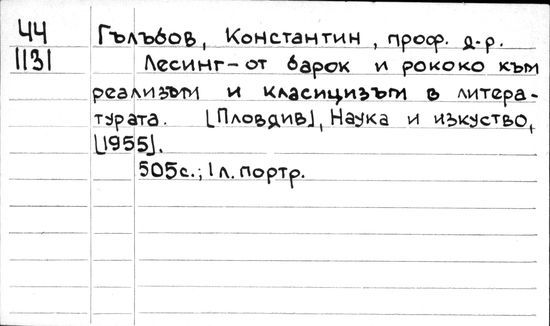 44 Гълъбов, Константин, проф. д-р.
1131 Лесинг – от барок и рококо към
реализъм и класицизъм в литера-
турата. [Пловдив], Наука и изкуство,
[1955].
505с.; 1л. портр.